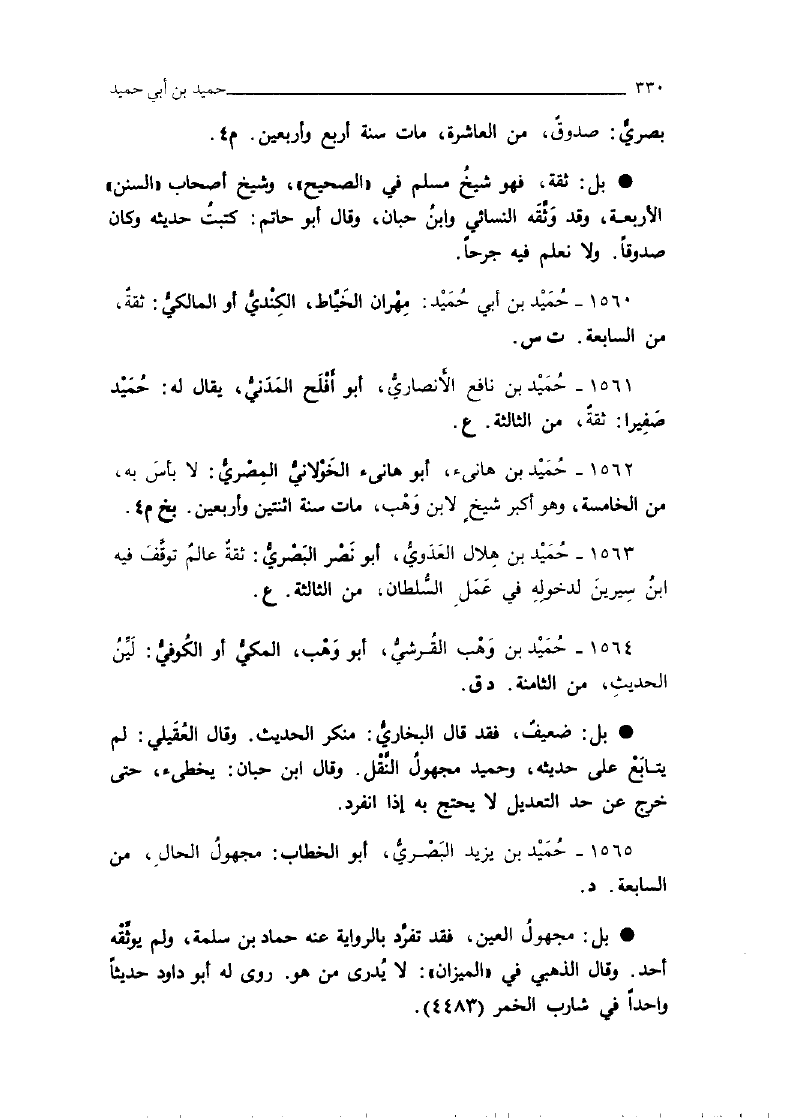 ٣٣٠ ـــــــــــــــــــــــــــــــــــــــــ حميد بن أبي حميد
بصريٌّ: صدوقٌ، من العاشرة، مات سنة أربع وأربعين. م٤.
● بل: ثقة، فهو شيخُ مسلم في «الصحيح»، وشيخ أصحاب «السنن»
الأربعـة، وقد وَثَّقَه النسائي وابنُ حبان، وقال أبو حاتم: كتبتُ حديثه وكان
صدوقاً. ولا نعلم فيه جرحاً.
١٥٦٠ ـ حُمَيْد بن أبي حُمَيْد: مِهْران الخَيَّاط، الكِنْديُّ أو المالكيُّ: ثقةٌ،
من السابعة. ت س.
١٥٦١ ـ حُمَيْد بن نافع الأَنصاريُّ، أبو أَفْلَح المَدَنيُّ، يقال له: حُمَيْد
صَفِيرا: ثقةٌ، من الثالثة. ع.
١٥٦٢ ـ حُمَيْد بن هانىء، أبو هانىء الخَوْلانيُّ المِصْريُّ: لا بأسَ به،
من الخامسة، وهو أكبر شيخٍ لابن وَهْب، مات سنة اثنتين وأربعين. بخ م٤.
١٥٦٣ ـ حُمَيْد بن هِلال العَدَويُّ، أبو نَصْر البَصْريُّ: ثقةٌ عالمٌ توقَّفَ فيه
ابنُ سِيرينَ لدخولِهِ في عَمَلِ السُّلطان، من الثالثة. ع.
١٥٦٤ ـ حُمَيْد بن وَهْب القُـرشيُّ، أبو وَهْب، المكيُّ أو الكُوفيُّ: لَيِّنُ
الحديثِ، من الثامنة. د ق.
● بل: ضعيفٌ، فقد قال البخاريُّ: منكر الحديث. وقال العُقَيلي: لم
يتـابَعْ على حديثه، وحميد مجهولُ النَّقْل. وقال ابن حبان: يخطىء، حتى
خرج عن حد التعديل لا يحتج به إذا انفرد.
١٥٦٥ ـ حُمَيْد بن يزيد البَصْـريُّ، أبو الخطاب: مجهولُ الحالِ، من
السابعة. د.
● بل: مجهولُ العين، فقد تفرَّد بالرواية عنه حماد بن سلمة، ولم يوثِّقْه
أحد. وقال الذهبي في «الميزان»: لا يُدرى من هو. روى له أبو داود حديثاً
واحداً في شارب الخمر (٤٤٨٣).